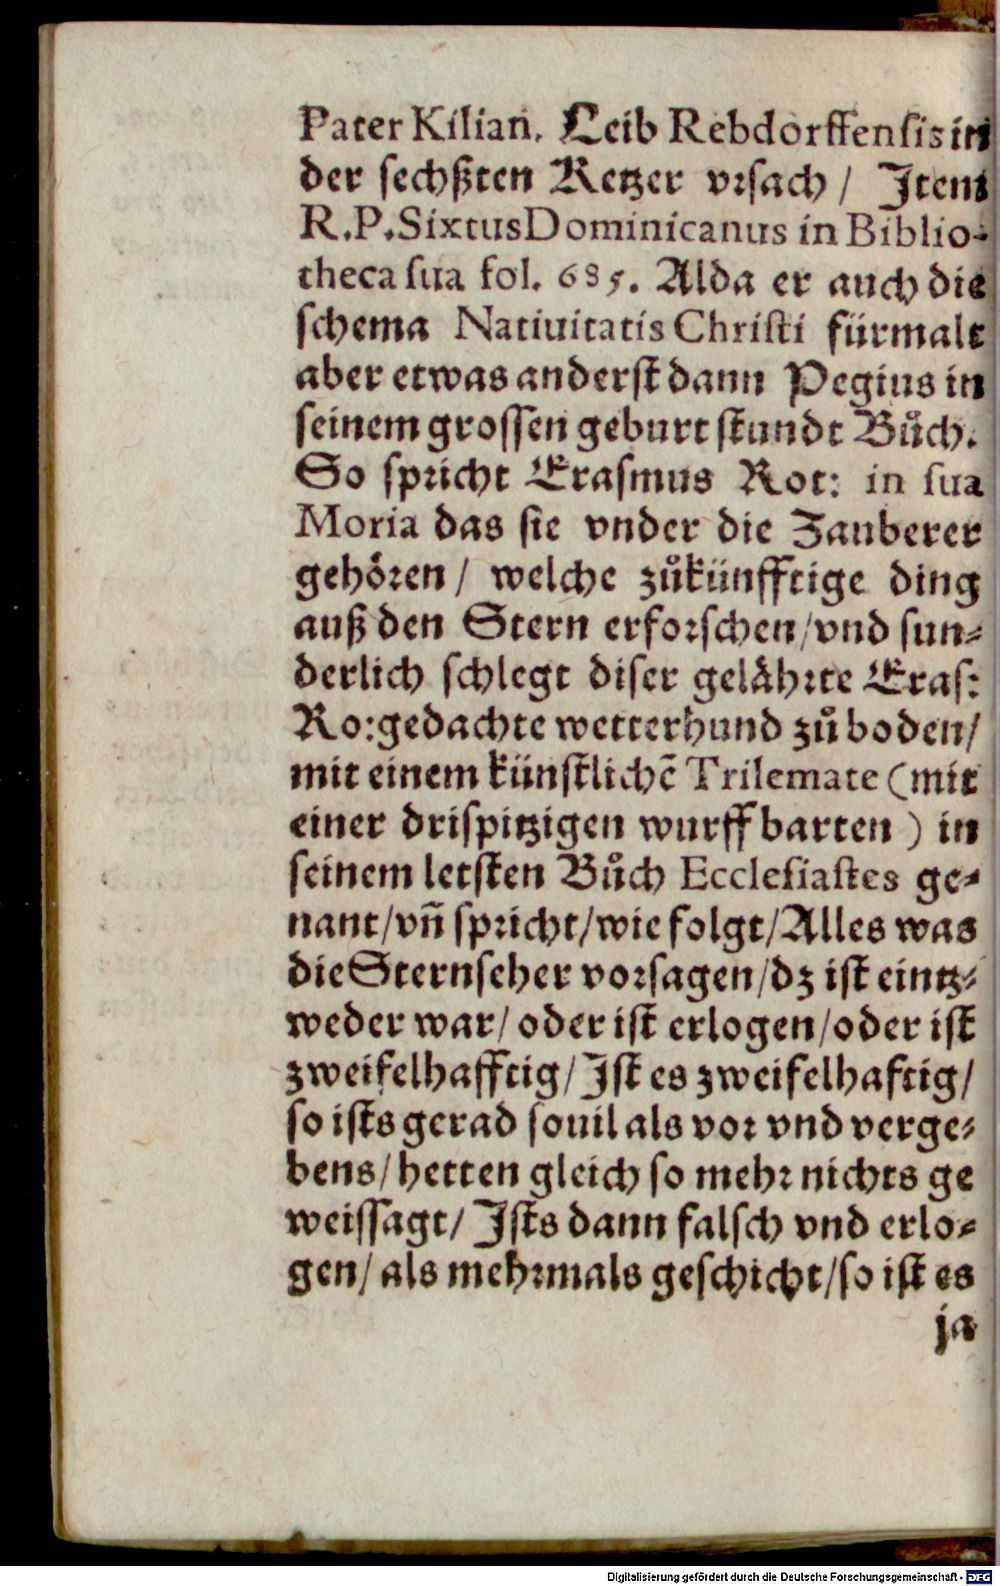 Pater Kilian. Leib Rebdorffensis in
der sechßten Ketzer vrsach / Item
R.P. Sixtus Dominicanus in Biblio-
theca sua fol. 685. Alda er auch die
schema Natiuitatis Christi fürmalt
aber etwas anderst dann Pegius in
seinem grossen geburt stundt Bůch.
So spricht Erasmus Rot: in sua
Moria das sie vnder die Zauberer
gehören / welche zůkünfftige ding
auß den Stern erforschen / vnd sun-
derlich schlegt diser gelährte Eras:
Ro: gedachte wetterhund zů boden /
mit einem künstlichē Trilemate (mit
einer drispitzigen wurff barten ) in
seinem letsten Bůch Ecclesiastes ge-
nant / vn̄ spricht / wie folgt / Alles was
die Sternseher vorsagen / dz ist eintz-
weder war / oder ist erlogen / oder ist
zweifelhafftig / Ist es zweifelhaftig /
so ists gerad souil als vor vnd verge-
bens / hetten gleich so mehr nichts ge
weissagt / Ists dann falsch vnd erlo-
gen / als mehrmals geschicht / so ist es
ja
Digitalisierung gefördert durch die Deutsche Forschungsgemeinschaft - DFG